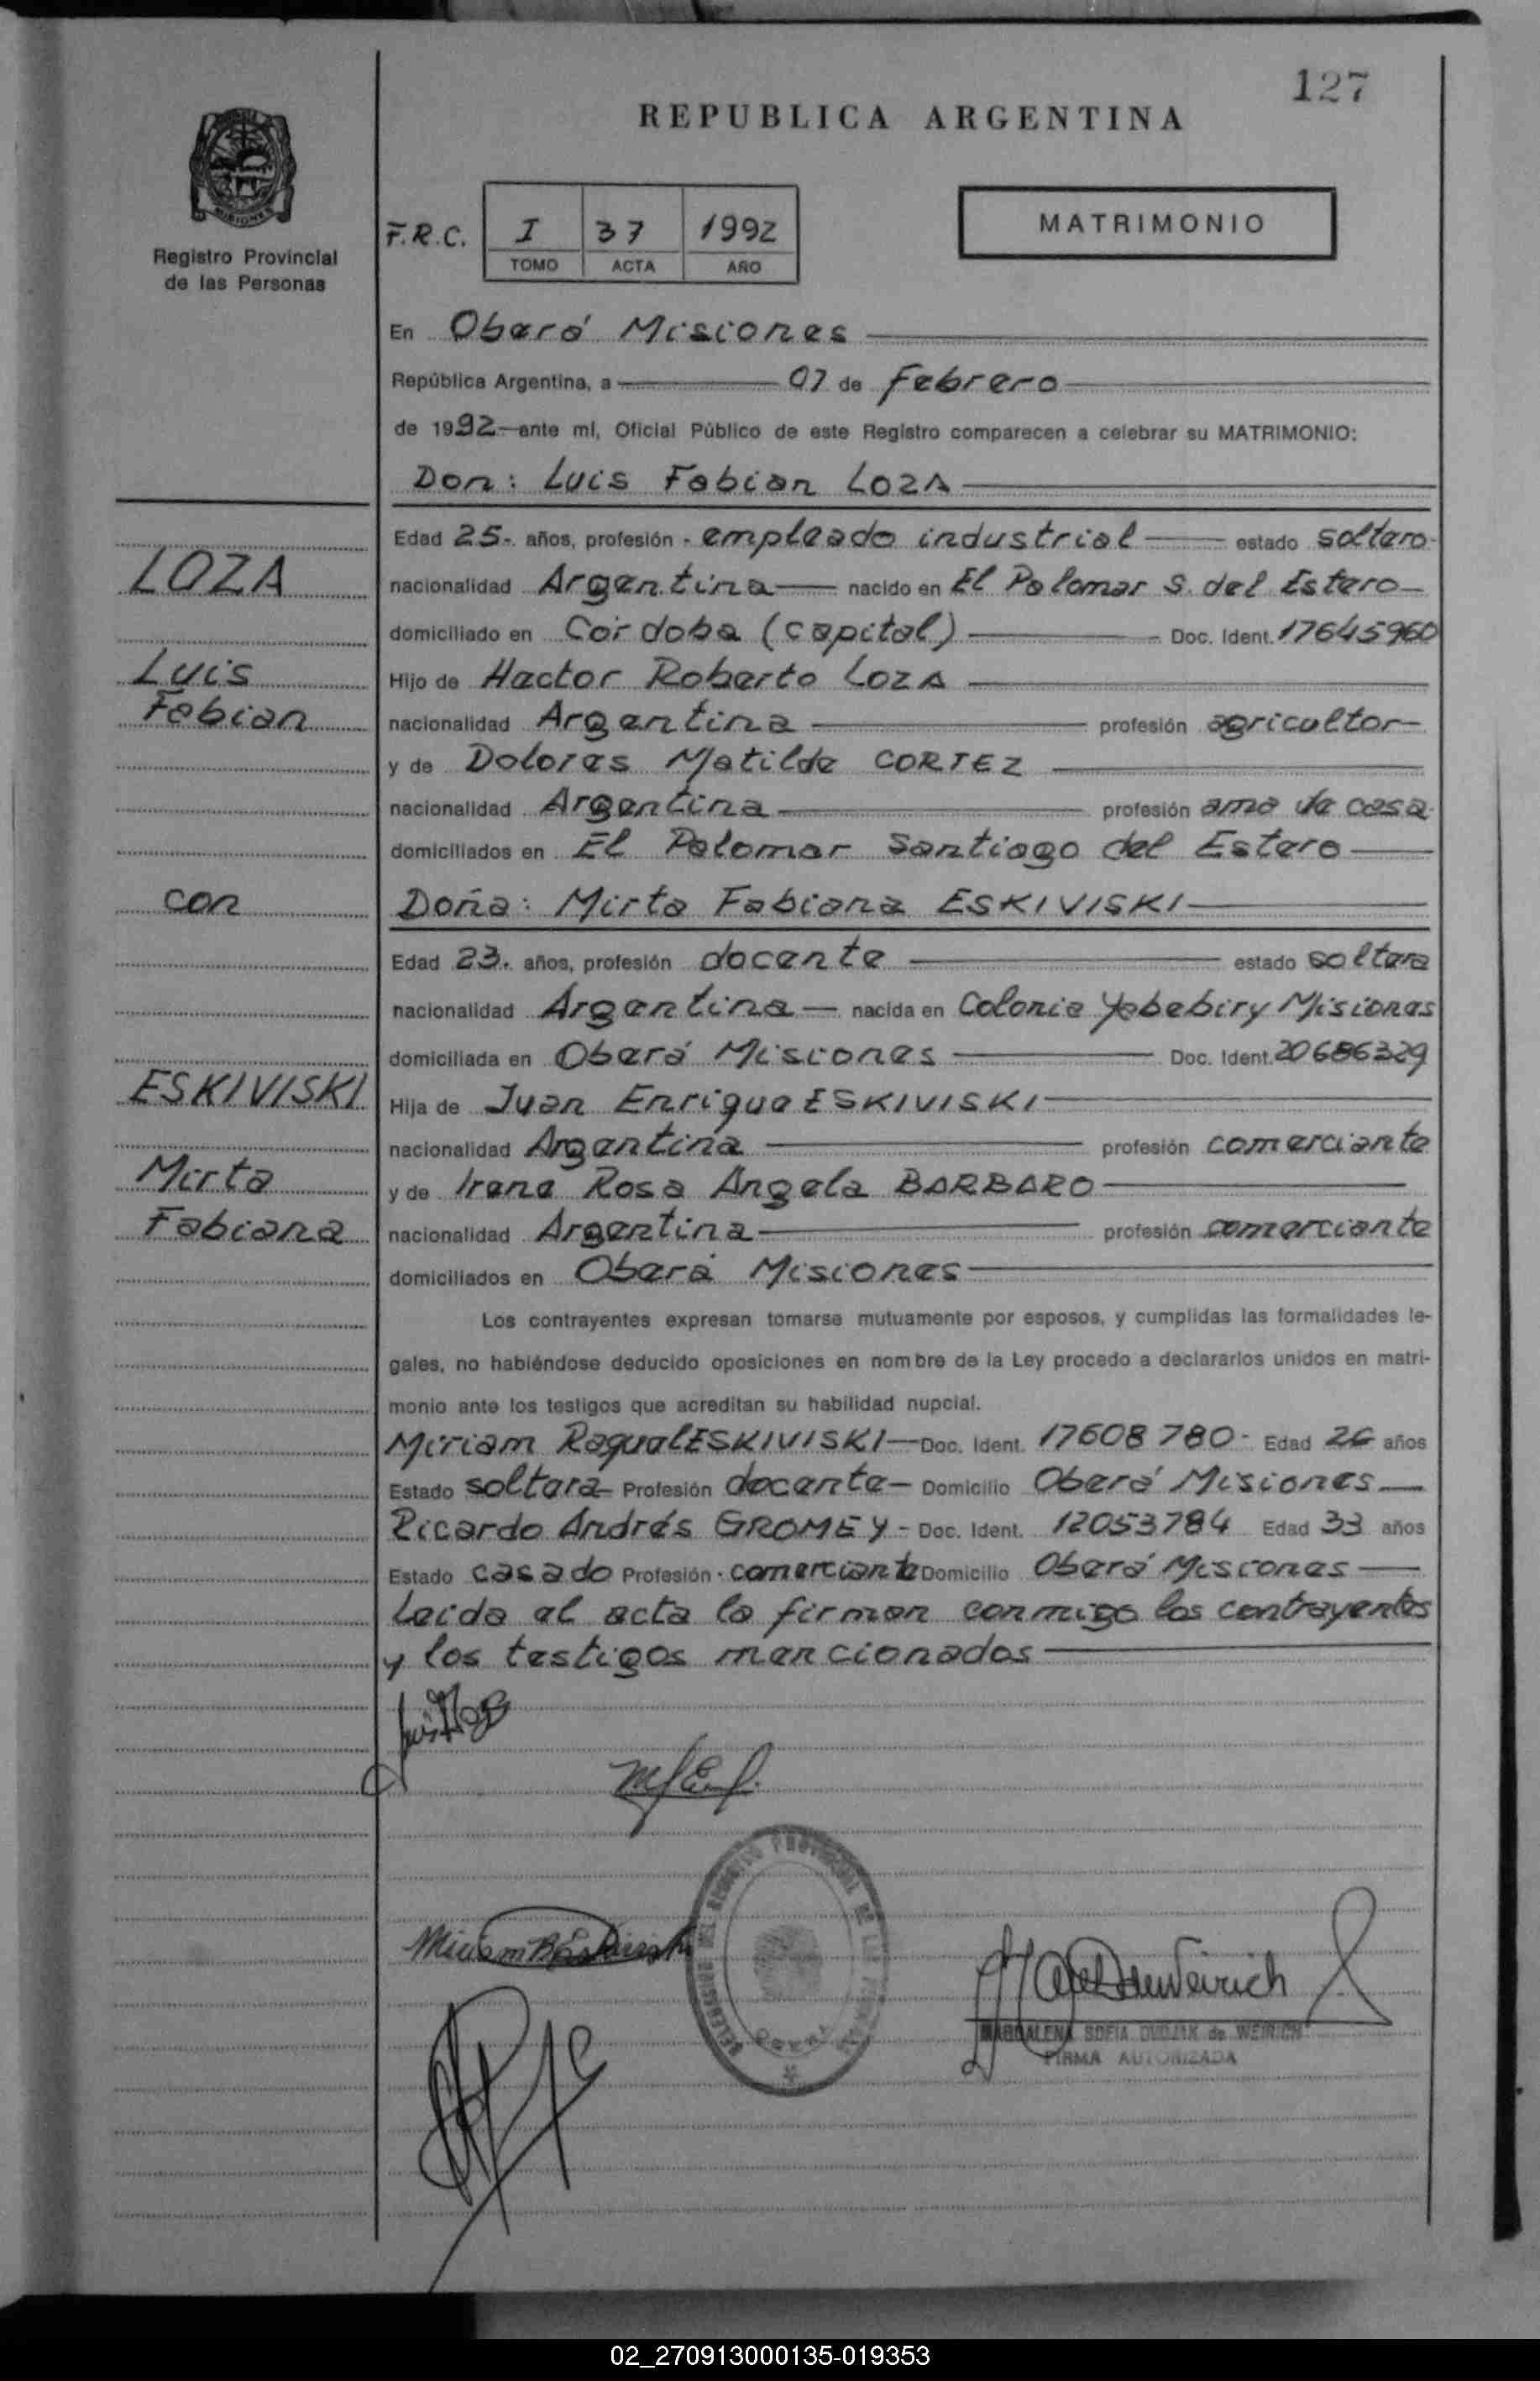 127
REPUBLICA ARGENTINA
MISIONES
Registro Provincial
de las Personas
F.R.C. I 37 1992
TOMO ACTA AÑO
MATRIMONIO
En Oberá Misiones
República Argentina, a 07 de Febrero
de 1992 ante mí, Oficial Público de este Registro comparecen a celebrar su MATRIMONIO:
Don: Luis Fabian LOZA
Edad 25. años, profesión - empleado industrial estado soltero-
LOZA
nacionalidad Argentina nacido en El Palomar S. del Estero
domiciliado en Córdoba (capital) Doc. Ident. 17645960
Luis
Hijo de Hector Roberto LOZA
Fabian
nacionalidad Argentina profesión agricultor
y de Dolores Matilde CORTEZ
nacionalidad Argentina profesión ama de casa
domiciliados en El Palomar Santiago del Estero
con
Doña: Mirta Fabiana ESKIVISKI
Edad 23. años, profesión docente estado soltera
nacionalidad Argentina nacida en Colonia Yabebiry Misiones
domiciliada en Oberá Misiones Doc. Ident. 20686329
ESKIVISKI
Hija de Juan Enrique ESKIVISKI
nacionalidad Argentina profesión comerciante
Mirta
y de Irene Rosa Angela BARBARO
Fabiana
nacionalidad Argentina profesión comerciante
domiciliados en Oberá Misiones
Los contrayentes expresan tomarse mutuamente por esposos, y cumplidas las formalidades le-
gales, no habiéndose deducido oposiciones en nombre de la Ley procedo a declararlos unidos en matri-
monio ante los testigos que acreditan su habilidad nupcial.
Miriam Raquel ESKIVISKI Doc. Ident. 17608780- Edad 26 años
Estado soltera Profesión docente Domicilio Oberá Misiones
Ricardo Andrés GROMEY - Doc. Ident. 12053784 Edad 33 años
Estado casado Profesión - comerciante Domicilio Oberá Misiones
Leida el acta la firman conmigo los contrayentes
y los testigos mencionados
MAGDALENA SOFIA de WEIRICH
FIRMA AUTORIZADA
02_270913000135-019353